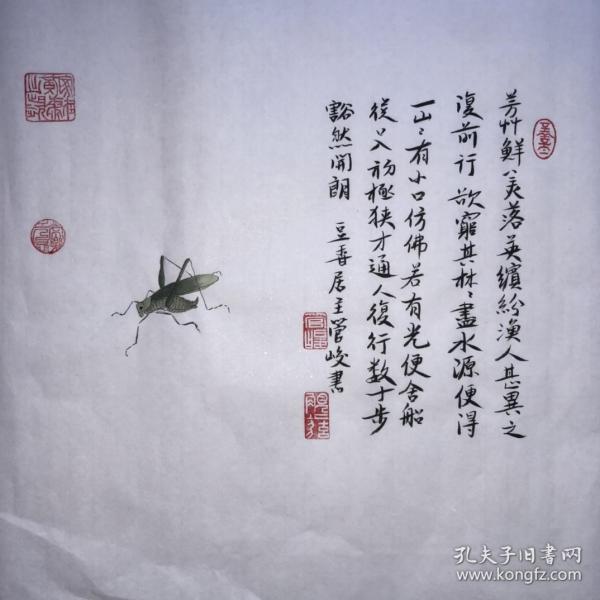 芳艸鲜美落英缤纷渔人甚異之
復前行欲窮其林〻盡水源便得
一山〻有小口仿佛若有光便舍船
從口入初極狭才通人復行数十步
豁然開朗 豆香居主管峻書
孔夫子旧书网
www.kongfz.com